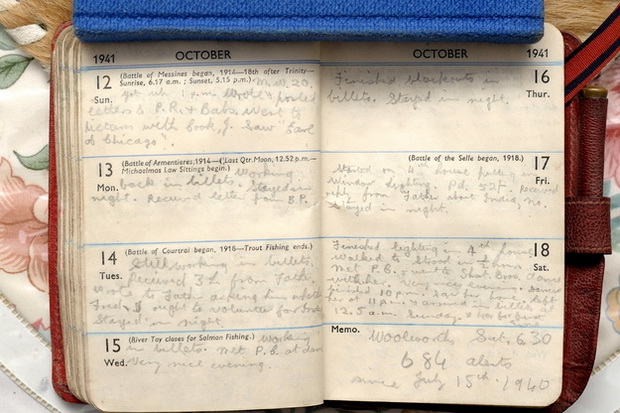 1941 OCTOBER
12 (Battle of Messines began, 1914—18th after Trinity—
Sun. Sunrise, 6.17 a.m.; Sunset, 5.15 p.m.)
Got up 1 p.m. Wrote & posted
letters to P.R. & Babs. Went to
pictures with Cook, J. Saw 'Earl
of Chicago'.
13 (Battle of Armentieres, 1914—(Last Qtr. Moon, 12.52 p.m.—
Mon. Michaelmas Law Sittings begin.) Working
back in billets. Stayed in
night. Received letter from B.P.
14 (Battle of Courtrai began, 1918—Trout Fishing ends.)
Tues. Still working in billets.
Received from Father
wrote to Father asking him
Fred, if ought to volunteer for
Stayed in night.
15 (River Tay closes for Salmon Fishing.) Working
Wed. in billets. Met P.B. at
Very nice evening.
OCTOBER 1941
16 Thur.
Finished blackouts in
billets. Stayed in night.
(Battle of the Selle began, 1918.) 17 Fri.
Started on 4th house putting in
window lighting. Pd. 52/-. Received
reply from Father about India, no.
Stayed in night.
18 Sat.
Finished lighting in 4th house
Walked to Strood in
Met P.B. & went to
with her. Very nice evening.
10 p.m. her home left
her at 11 p.m. & arrived in billets
12.5 a.m. Sunday.
Memo. Woolworths Sat. 6.30
684 alerts
since July 15th 1940